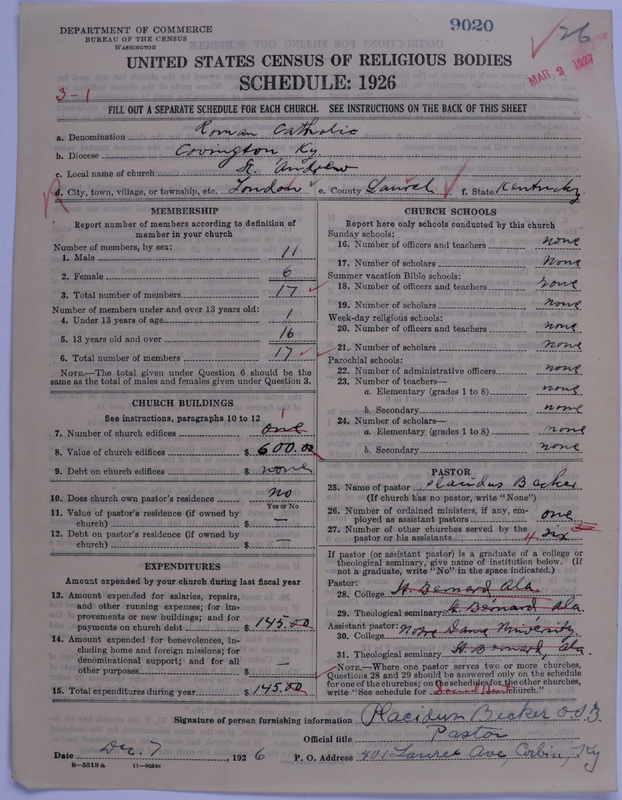 DEPARTMENT OF COMMERCE
BUREAU OF THE CENSUS
WASHINGTON
9020
26
MAR 2 1927
UNITED STATES CENSUS OF RELIGIOUS BODIES
SCHEDULE: 1926
3-1
FILL OUT A SEPARATE SCHEDULE FOR EACH CHURCH. SEE INSTRUCTIONS ON THE BACK OF THIS SHEET
a. Denomination Roman Catholic
b. Diocese Covington Ky
c. Local name of church St. Andrew
R
d. City, town, village, or township, etc. London e. County Laurel f. State Kentucky
MEMBERSHIP
Report number of members according to definition of member in your church
Number of members, by sex:
1. Male 11
2. Female 6
3. Total number of members 17
Number of members under and over 13 years old:
4. Under 13 years of age 1
5. 13 years old and over 16
6. Total number of members 17
NOTE.—The total given under Question 6 should be the same as the total of males and females given under Question 3.
CHURCH BUILDINGS
See instructions, paragraphs 10 to 12
7. Number of church edifices one 1
8. Value of church edifices $ 600.00
9. Debt on church edifices $ none
10. Does church own pastor's residence no
Yes or No
11. Value of pastor's residence (if owned by church) $ —
12. Debt on pastor's residence (if owned by church) $ —
EXPENDITURES
Amount expended by your church during last fiscal year
13. Amount expended for salaries, repairs, and other running expenses; for improvements or new buildings; and for payments on church debt $ 145.00
14. Amount expended for benevolences, including home and foreign missions; for denominational support; and for all other purposes $ —
15. Total expenditures during year $ 145.00
CHURCH SCHOOLS
Report here only schools conducted by this church
Sunday schools:
16. Number of officers and teachers none
17. Number of scholars none
Summer vacation Bible schools:
18. Number of officers and teachers none
19. Number of scholars none
Week-day religious schools:
20. Number of officers and teachers none
21. Number of scholars none
Parochial schools:
22. Number of administrative officers none
23. Number of teachers—
a. Elementary (grades 1 to 8) none
b. Secondary none
24. Number of scholars—
a. Elementary (grades 1 to 8) none
b. Secondary none
PASTOR
25. Name of pastor Placidus Becker
(If church has no pastor, write "None")
26. Number of ordained ministers, if any, employed as assistant pastors one
27. Number of other churches served by the pastor or his assistants 4 six
If pastor (or assistant pastor) is a graduate of a college or theological seminary, give name of institution below. (If not a graduate, write "No" in the space indicated.)
Pastor:
28. College St Bernard Ala.
29. Theological seminary St Bernard Ala.
Assistant pastor:
30. College Notre Dame University
31. Theological seminary St Bernard, Ala.
NOTE.—Where one pastor serves two or more churches, Questions 28 and 29 should be answered only on the schedule for one of the churches; on the schedules for the other churches, write "See schedule for Sacred Heart church."
Signature of person furnishing information Placidus Becker O.S.B.
Official title Pastor
Date Dec. 7, 1926 P. O. Address 401 Laurel Ave, Corbin, Ky
8—5518 a 11—9584c